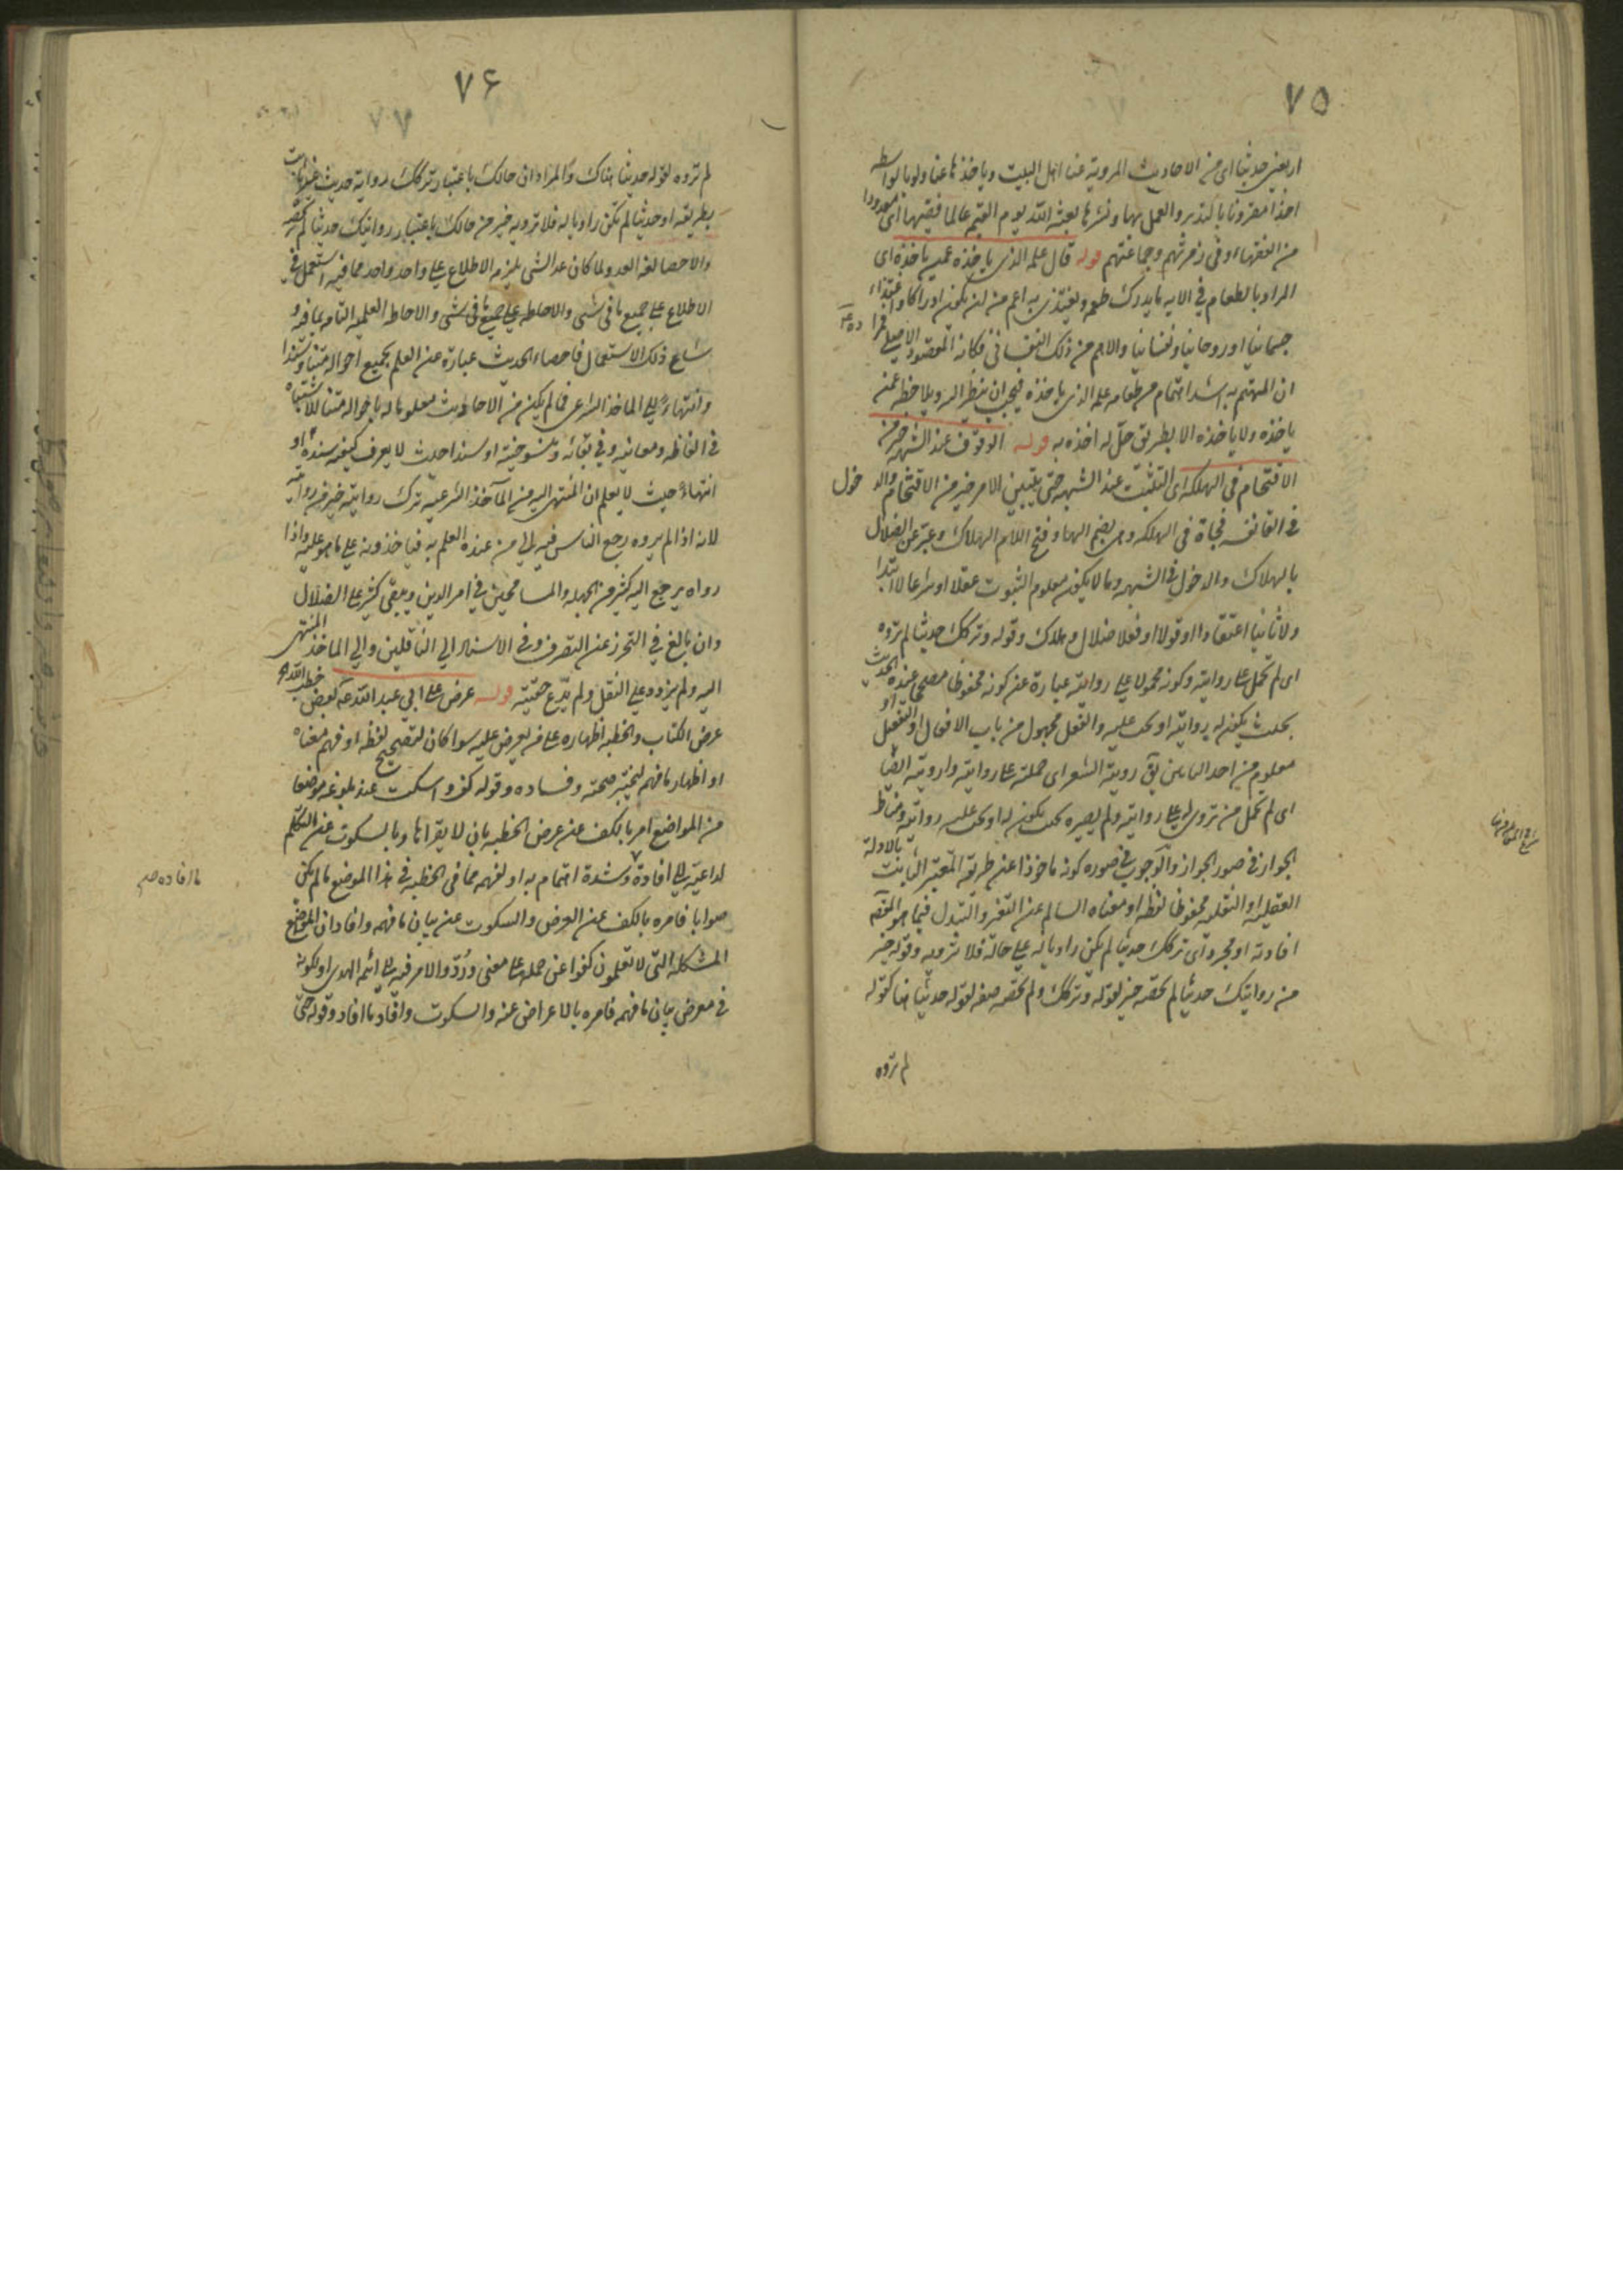 ٧٥
اربعين حديثا اى من الاحاديث المروية عنا اهل البيت وياخذها عنا ولو بالواسطه
اخذا مقرونا بالتدبر والعمل بها ونشرها بعثه الله يوم القيمه عالما فقيها اى معدودا
من الفقهاء وفى زمرتهم وجماعتهم قوله قال علمه الذى ياخذه عمن ياخذه اى
المراد بالطعام فى الايه ما يدرك طعمه ويغتذى به اعم من ان يكون ادراكا واغتذاء
جسمانيا او روحانيا ونفسانيا والاهم من ذلك النفسانى فكانه المقصود الاصلى
ان المهتم به اشد اهتمام من طعامه علمه الذى ياخذه فيجب ان ينظر اليه ويلاحظه عمن
ياخذه ولا ياخذه الا بطريق حل له اخذه به قوله الوقوف عند الشبهه خير من
الاقتحام فى الهلكه اى التثبت عند الشبهه حتى يتبين الامر خير من الاقتحام والدخول
فى فجاة فى الهلكه وهى بضم الهاء وفتح اللام الهلاك وعبر عن الضلال
بالهلاك والدخول فى الشبهه وما لا يكون معلوم الثبوت عقلا او شرعا لا ابتدا
ولا ثانيا اعتقادا او قولا او فعلا ضلال وهلاك وقوله وتركك حديثا لم تروه
اى لم تحمل على روايته وكونه محمولا على روايته عبارة عن كونه محفوظا مصححا عنده الحديث
بحيث يكون له روايته او يجب عليه والفعل مجهول من باب الافعال او التفعيل او
معلوم من احد البابين يق رويته الشعر اى حملته على روايته وارويته ايضا
اى لم تحمل من تروى له على روايته ولم يصيره بحيث يكون له او يجب عليه روايته ومناط
الجواز فى صور الجواز والوجوب فى صوره كونه ماخوذا عن طريقه المعتبر الثابت بالادلة
العقليه او النقليه محفوظا لفظه او معناه السالم عن التغير والتبدل فيما هو المقصود
افادته او مجردا اى تركك حديثا لم تكن راويا له على حاله فلا ترويه وقوله خير
من روايتك حديثا لم تحصه خبر لقوله وتركك ولم تحصه صفه لقوله حديثا هنا كقوله
لم تروه
٧۶
لم تروه لقوله حديثا هناك والمراد ان حالك باعتبار تركك رواية حديث غير ثابت
بطريقه او حديثا لم تكن راويا له فلا ترويه خير من حالك باعتبار روايتك حديثا لم تحصه
والاحصا لغه العد ولما كان عد الشى يلزمه الاطلاع على واحد واحد مما فيه استعمل فى
الاطلاع على جميع ما فى شى والاحاطه على جميع ما فى شى والاحاطه العلميه التامه بما فيه و
شاع ذلك الاستعمال فاحصاء الحديث عبارة عن العلم بجميع احواله متنا وسندا
وانتهاء الى الماخذ الشرعى فما لم يكن من الاحاديث معلوما له باحواله متنا للاشتباه
فى الفاظه ومعانيه وفى بقائه ومنسوخيته او سندا حيث لا يعرف كيفيه سنده او
انتهاء حيث لا يعلم ان المنتهى اليه من المآخذ الشرعيه ترك روايته خير من روايته
لانه اذا لم يروه رجع الناس فيه الى من عنده العلم به فياخذونه على ما هو عليه واذا
رواه يرجع اليه كثير من الجهله والمسامحين فى امر الدين ويبقى كثير على الضلال
وان بالغ فى التحرز عن التصرف وفى الاسناد الى الناقلين والى الماخذ المنتهى
اليه ولم يزد على النقل ولم يدع حقيته قوله عرض على ابى عبد الله ع بعض خطب ابيه
عرض الكتاب والخطبه اظهاره على من يعرض عليه سوا كان لتصحيح لفظه او فهم معناه
او اظهار ما فهم ليختبر صحته وفساده وقوله كف واسكت عند بلوغه موضعا
من المواضع امر بالكف عن عرض الخطبه بان لا يقراها وبالسكوت عن التكلم
لداعيته الى افادة وشدة اهتمام به او لفهمه مما فى الخطبه فى هذا الموضع ما لم يكن
صوابا فامره بالكف عن العرض والسكوت عن بيان ما فهمه وافاد ان المواضع
المشكله التى لا تعلمون كفوا عن حملها على معنى وردوا الامر فيه الى ائمه الهدى او لكونه
فى معرض بيان ما فهمه فامره بالاعراض عنه والسكوت وافاد ما افاد وقوله حتى
ما افاده صح